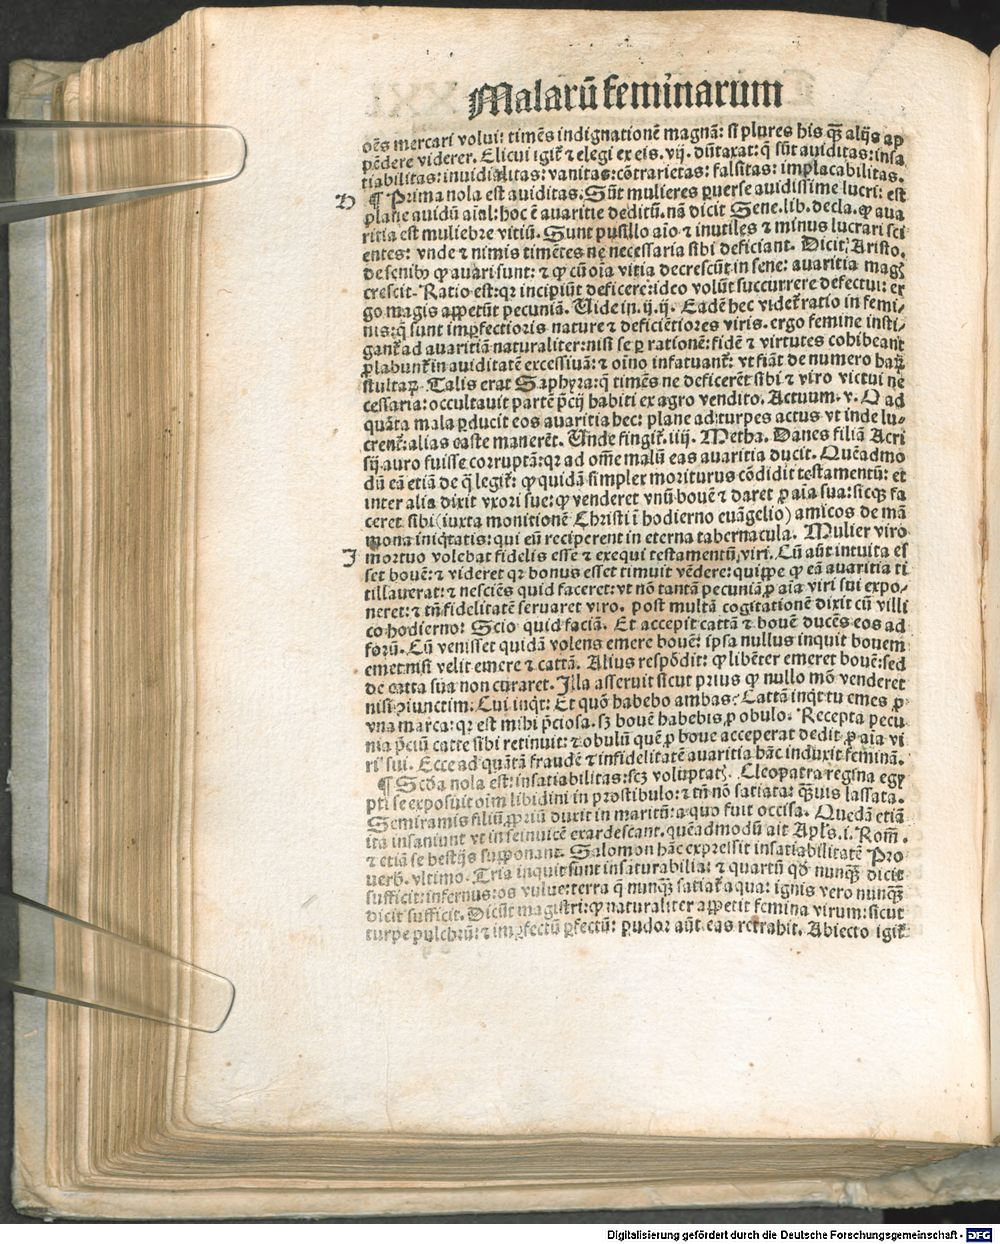 Malarū feminarum
oēs mercari volui: timēs indignationē magnā: si plures his qȝ alijs ap
pēdere viderer. Elicui igit̄ ⁊ elegi ex eis. vij. dūtaxat: q̄ sūt auiditas: insa
tiabilitas: inuidialitas: vanitas: cōtrarietas: falsitas: implacabilitas.
H ¶ Prima nola est auiditas. Sūt mulieres puerse auidissime lucri: est
plane auidū aīal: hoc ē auaritie deditū. nā dicit Sene. lib. decla. ꝙ aua
ritia est muliebre vitiū. Sunt pusillo aīo ⁊ inutiles ⁊ minus lucrari sci
entes: vnde ⁊ nimis timētes ne necessaria sibi deficiant. Dicit Aristo.
de senibꝰ ꝙ auari sunt: ⁊ ꝙ cū oīa vitia decrescūt in sene: auaritia magꝭ
crescit. Ratio est: qꝛ incipiūt deficere: ideo volūt succurrere defectui: er
go magis appetūt pecuniā. Uide in. ij. ij. Eadē hec videt̄ ratio in femi/
nis: q̄ sunt impfectioris nature ⁊ deficiētiores viris. ergo femine insti/
gant̄ ad auaritiā naturaliter: nisi se p rationē: fidē ⁊ virtutes cohibeant
plabunt̄ in auiditatē excessiuā: ⁊ oīno infatuant̄: vt fiāt de numero haꝝ
stultaꝝ. Talis erat Saphyra: q̄ timēs ne deficerēt sibi ⁊ viro victui ne
cessaria: occultauit partē p̄cij habiti ex agro vendito. Actuum. v. O ad
quāta mala pducit eos auaritia hec: plane ad turpes actus vt inde lu/
crent̄: alias caste manerēt. Unde fingit̄. iiij. Metha. Danes filiā Acri
sij auro fuisse corruptā: qꝛ ad omē malū eas auaritia ducit. Quēadmo
dū eā etiā de q̄ legit̄: ꝙ quidā simplex moriturus cōdidit testamentū: et
inter alia dixit vxori sue: ꝙ venderet vnū bouē ⁊ daret p aīa sua: sicqȝ fa
ceret sibi (iuxta monitionē Christi ī hodierno euāgelio) amicos de mā
mona iniq̄tatis: qui eū reciperent in eterna tabernacula. Mulier viro
I mortuo volebat fidelis esse ⁊ exequi testamentū viri. Cū aūt intuita es
set bouē: ⁊ videret qꝛ bonus esset timuit vēdere: quippe ꝙ eā auaritia ti
tillauerat: ⁊ nesciēs quid faceret: vt nō tantā pecuniā p aīa viri sui expo/
neret: ⁊ tn̄ fidelitatē seruaret viro. post multā cogitationē dixit cū villi
co hodierno: Scio quid faciā. Et accepit cattā ⁊ bouē ducēs eos ad
forū. Cū venisset quidā volens emere bouē: ipsa nullus inquit bouem
emet nisi velit emere ⁊ cattā. Alius respōdit: ꝙ libēter emeret bouē: sed
de catta sua non curaret. Illa asseruit sicut prius ꝙ nullo mō venderet
nisi ꝯiunctim. Cui inq̄t: Et quō habebo ambas? Cattā inq̄t tu emes p
vna marca: qꝛ est mihi p̄ciosa. sȝ bouē habebis p obulo. Recepta pecu
nia p̄ciū catte sibi retinuit: ⁊ obulū quē p boue acceperat dedit p aīa vi
ri sui. Ecce ad quātā fraudē ⁊ infidelitatē auaritia hāc induxit feminā.
¶ Scd̄a nola est: insatiabilitas: scȝ voluptatꝭ. Cleopatra regina egy
pti se exposuit oīm libidini in prostibulo: ⁊ tn̄ nō satiata: qȝuis lassata.
Semiramis filiū ppriū duxit in maritū: a quo fuit occisa. Quedā etiā
ita insaniunt vt in seinuicē exardescant. quēadmodū ait Apl̄s. i. Rom̄.
⁊ etiā se bestijs supponant. Salomon hāc expressit insatiabilitatē Pro
uerb. vltimo. Tria inquit sunt insaturabilia: ⁊ quartū qd̄ nunqȝ dicit
sufficit: infernus: os vulue: terra q̄ nunqȝ satiat̄ aqua: ignis vero nunqȝ
dicit sufficit. Dicūt magistri: ꝙ naturaliter appetit femina virum: sicut
turpe pulchrū: ⁊ impfectū pfectū: pudor aūt eas retrahit. Abiecto igit̄
Digitalisierung gefördert durch die Deutsche Forschungsgemeinschaft - DFG